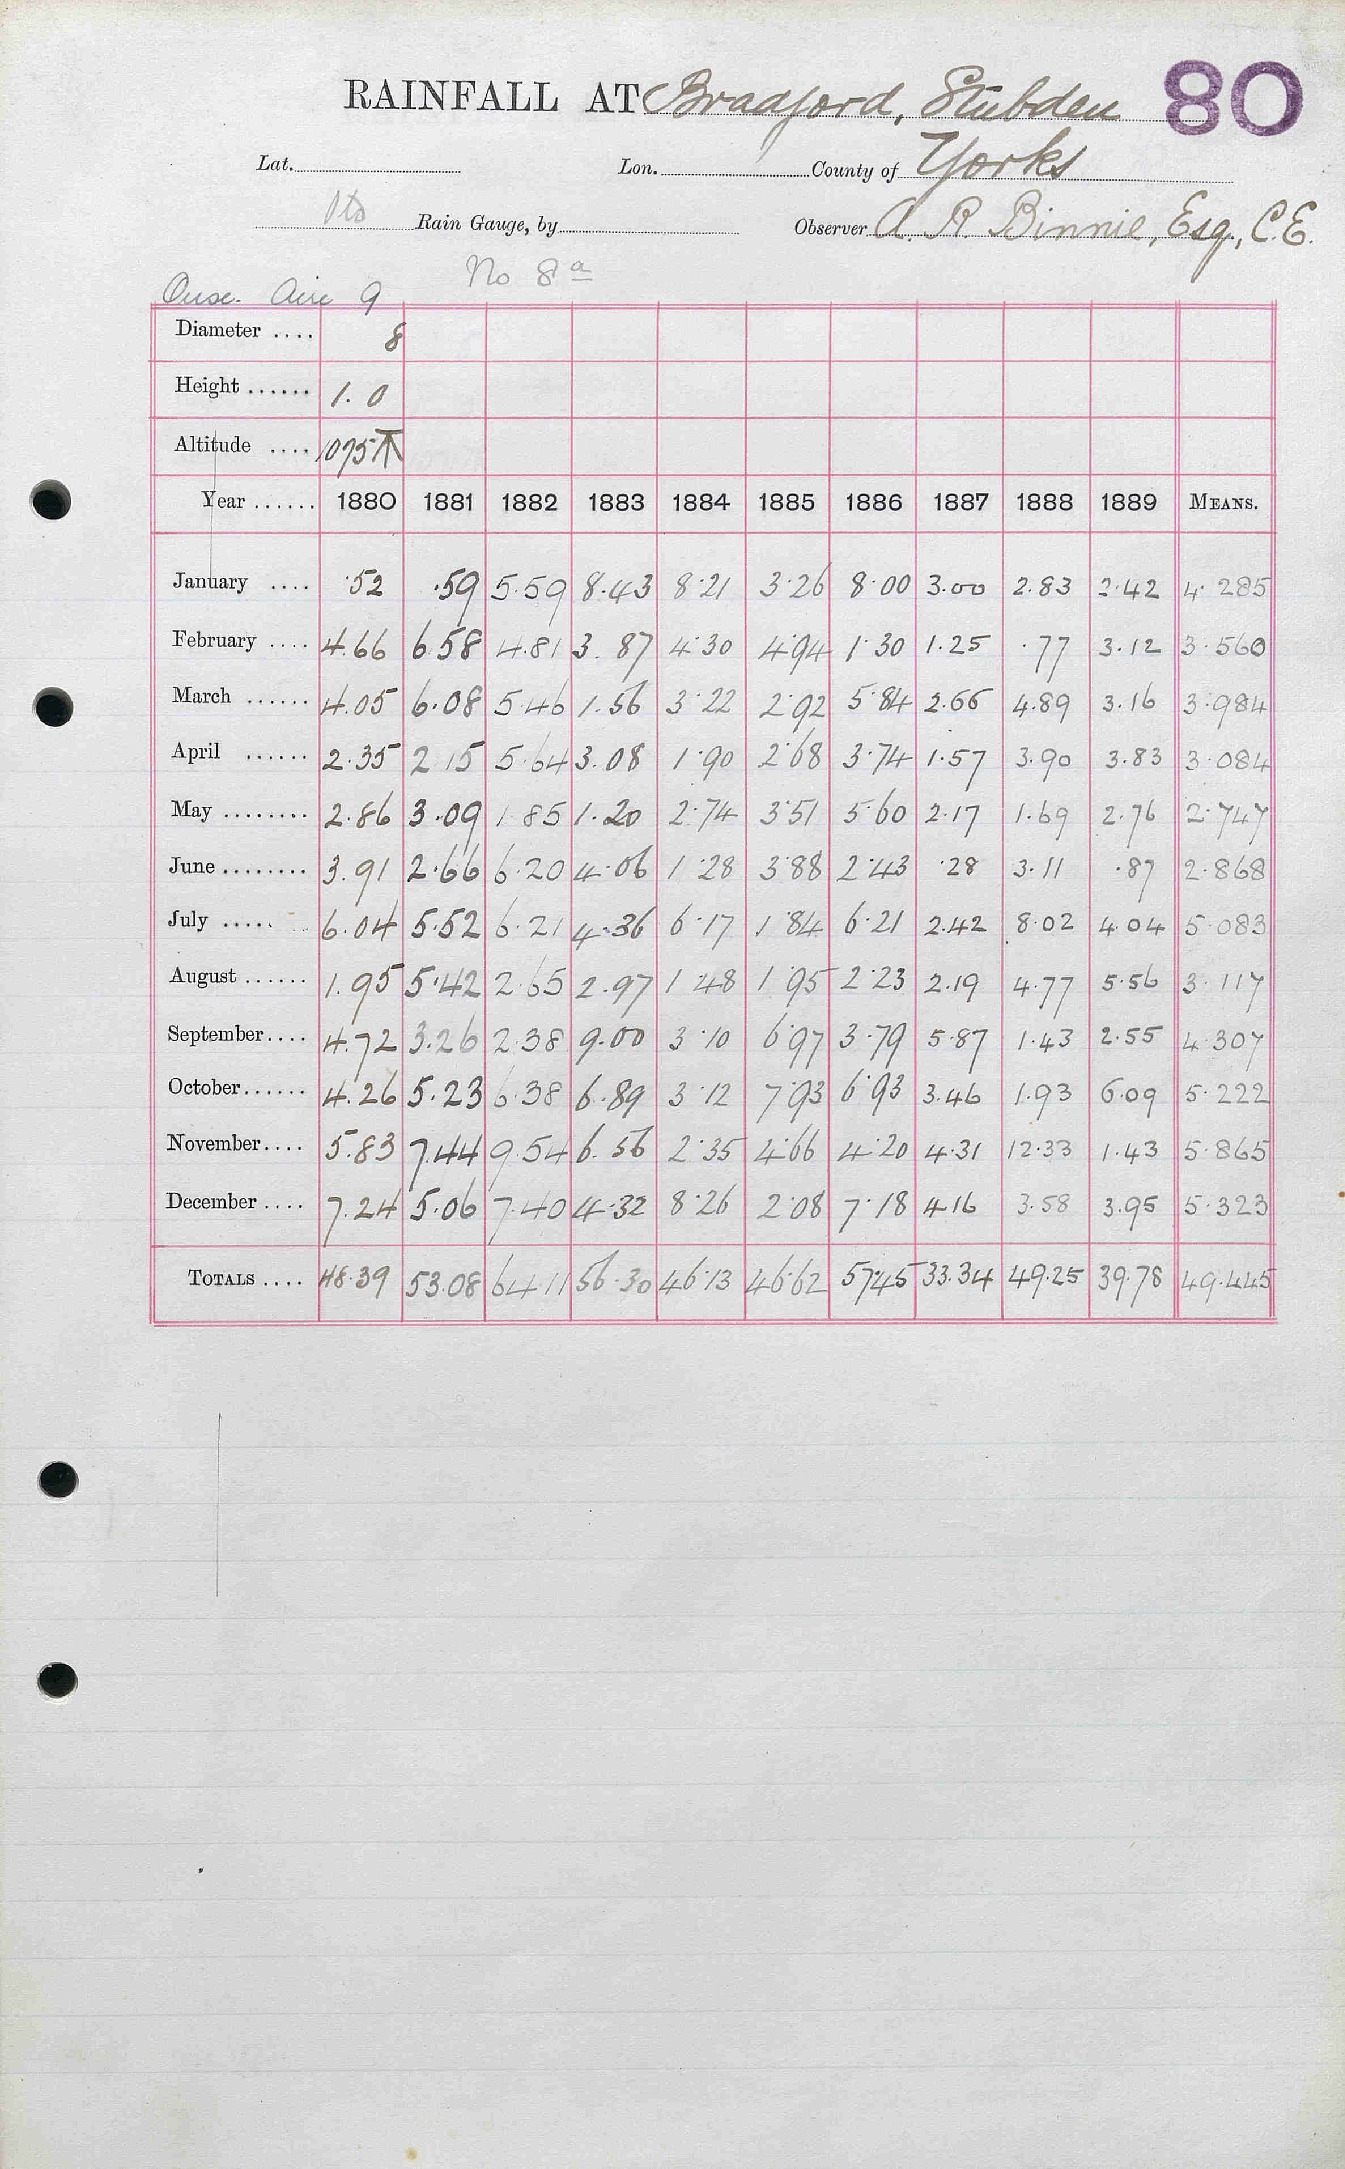 RAINFALL AT Bradford, Stubden 80
Lat. Lon. County of Yorks
Rain Gauge, by Observer A. R. Binnie, Esq., C.E.
No 8 a
Ouse. Aire 9
Diameter .... 8
Height ...... 1. 0
Altitude .... 1075 T
Year ...... 1880 1881 1882 1883 1884 1885 1886 1887 1888 1889 MEANS.
January .... .52 .59 5.59 8.43 8.21 3.26 8.00 3.00 2.83 2.42 4.285
February .... 4.66 6.58 4.81 3.87 4.30 4.94 1.30 1.25 .77 3.12 3.560
March ...... 4.05 6.08 5.46 1.56 3.22 2.92 5.84 2.66 4.89 3.16 3.984
April ...... 2.35 2.15 5.64 3.08 1.90 2.68 3.74 1.57 3.90 3.83 3.084
May ........ 2.86 3.09 1.85 1.20 2.74 3.51 5.60 2.17 1.69 2.76 2.747
June ........ 3.91 2.66 6.20 4.06 1.28 3.88 2.43 .28 3.11 .87 2.868
July ..... 6.04 5.52 6.21 4.36 6.17 1.84 6.21 2.42 8.02 4.04 5.083
August ...... 1.95 5.42 2.65 2.97 1.48 1.95 2.23 2.19 4.77 5.56 3.117
September.... 4.72 3.26 2.38 9.00 3.10 6.97 3.79 5.87 1.43 2.55 4.307
October...... 4.26 5.23 6.38 6.89 3.12 7.93 6.93 3.46 1.93 6.09 5.222
November.... 5.83 7.44 9.54 6.56 2.35 4.66 4.20 4.31 12.33 1.43 5.865
December .... 7.24 5.06 7.40 4.32 8.26 2.08 7.18 4.16 3.58 3.95 5.323
TOTALS .... 48.39 53.08 64.11 56.30 46.13 46.62 57.45 33.34 49.25 39.78 49.445